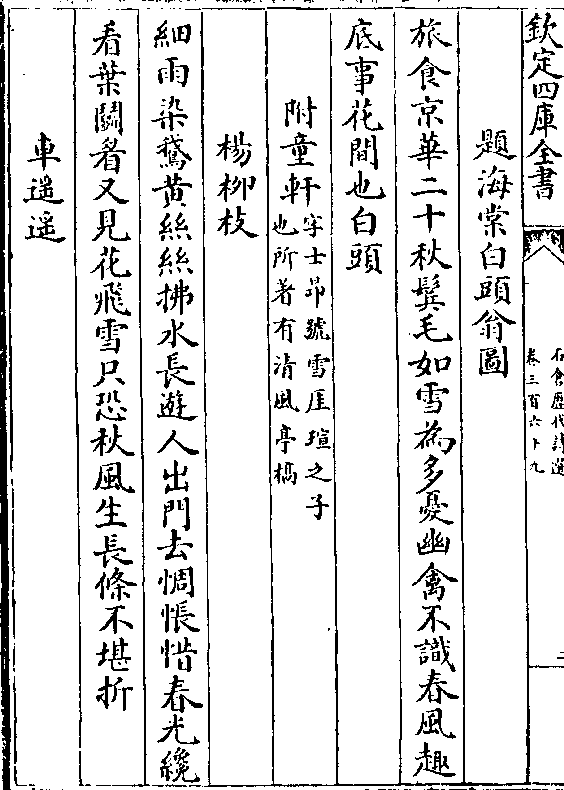 欽定四庫全書
石倉歷代詩選
卷三百六十九
題海棠白頭翁圖
旅食京華二十秋鬓毛如雪為多憂幽禽不識春風趣
底事花間也白頭
附童軒字士昂號雪厓瑄之子
也所著有清風亭槁
楊柳枝
細雨染鵞黄絲絲拂水長遊人出門去惆悵惜春光纔
看葉鬬眉又見花飛雪只恐秋風生長條不堪折
車遥遥